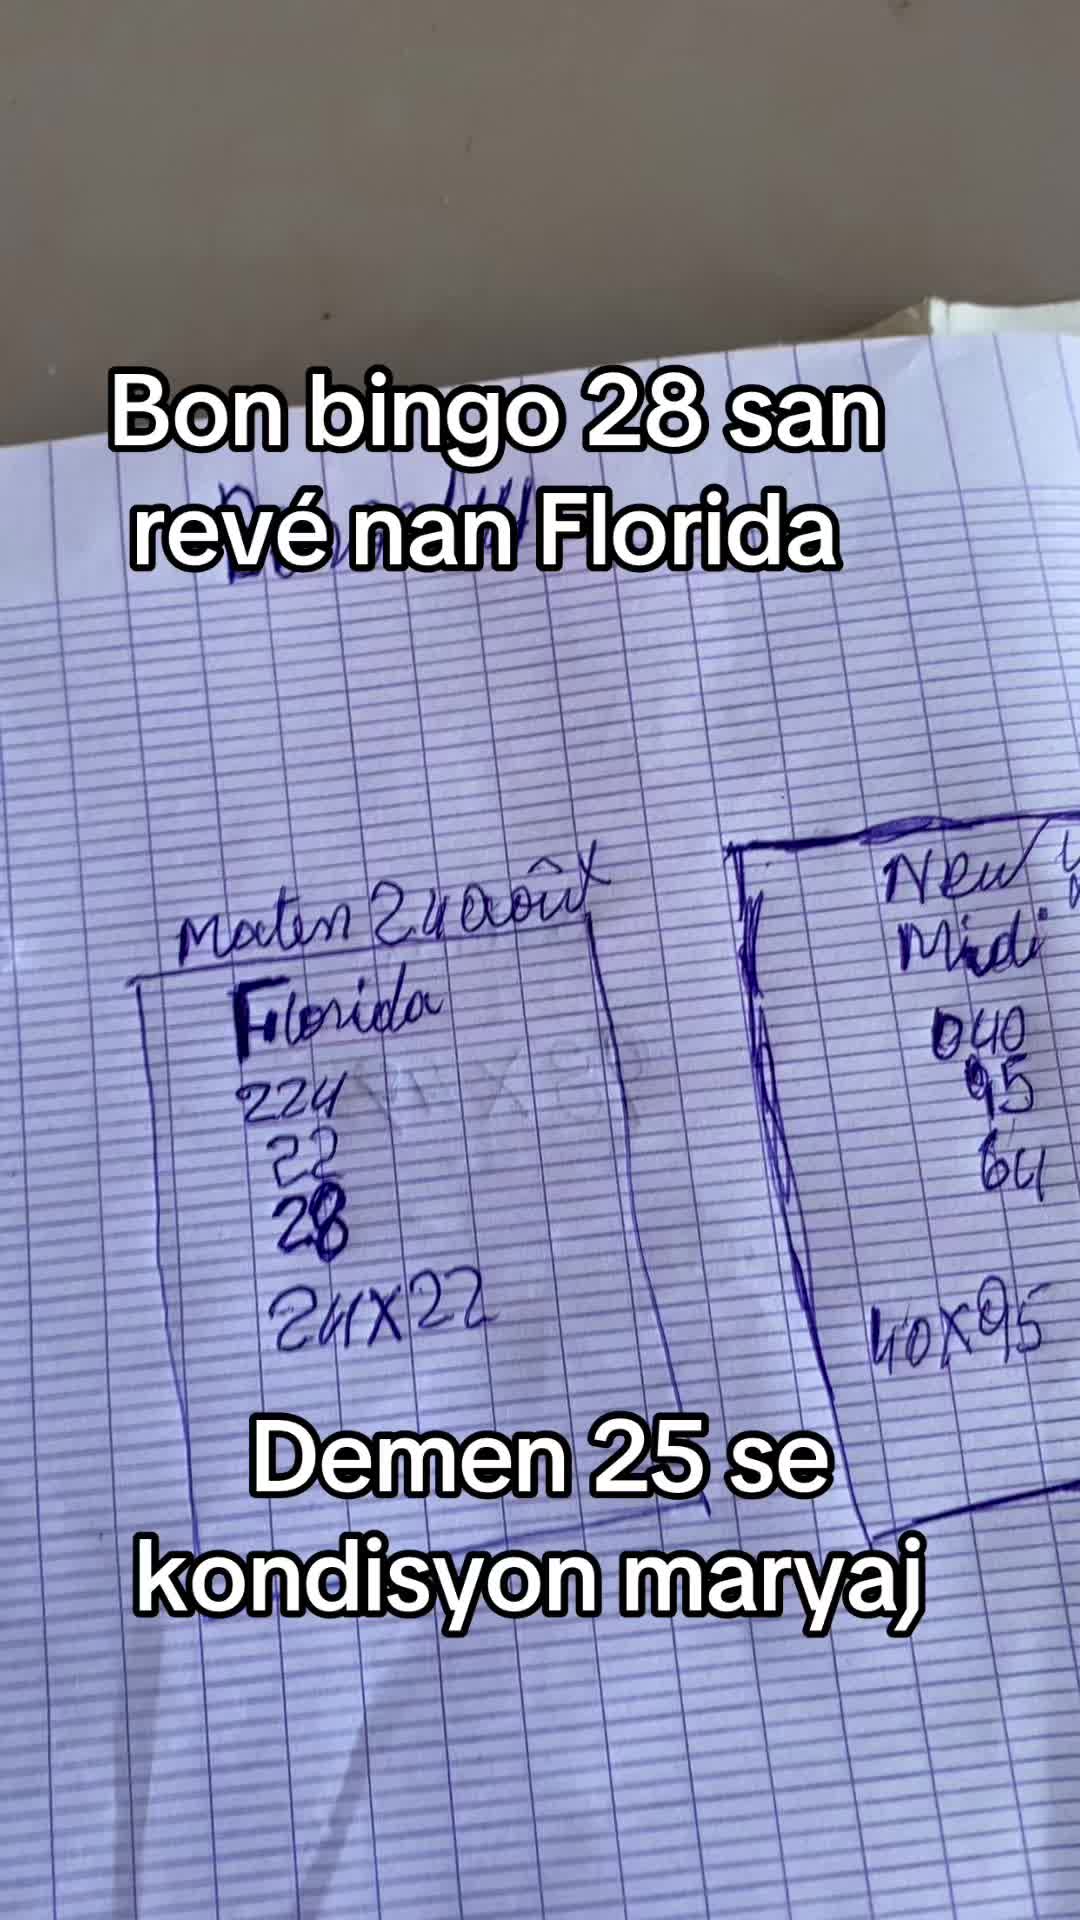 Bon bingo 28 san
revé nan Florida
Maten 24 août
Florida
224
22
28
24x22
New
Midi
040
95
64
40x95
Demen 25 se
kondisyon maryaj